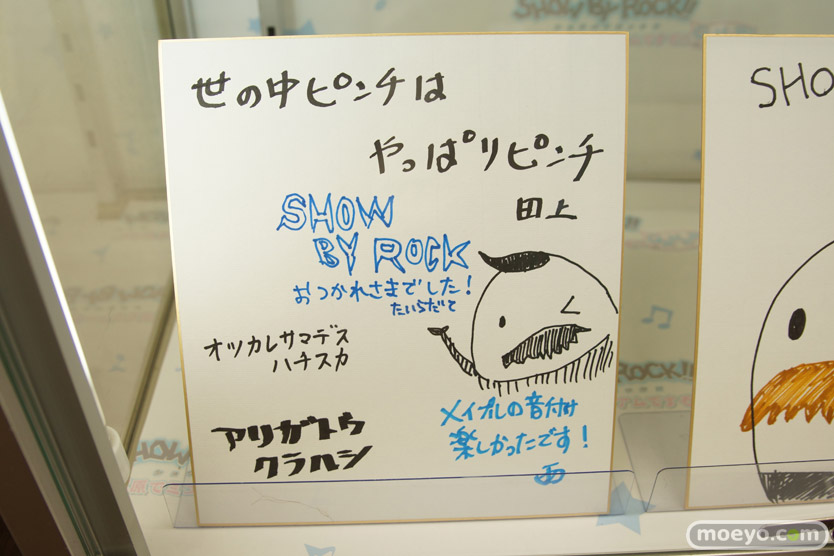 SHOW BY ROCK!!
世の中ピンチは
やっぱりピンチ
田上
SHOW
BY ROCK
おつかれさまでした!
たいらだて
オツカレサマデス
ハチスカ
アリガトウ
クラハシ
メイプルの音付け
楽しかったです!
SHO
ROCK!!
SHOW
moeyo.com